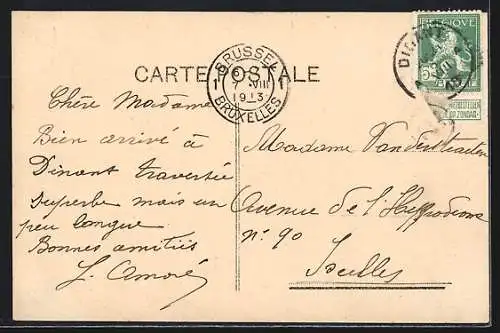 BELGIQUE
5
DINANT
BRUSSEL
7 VIII
1913
BRUXELLES
CARTE POSTALE
Chère Madame
Bien arrivé à
Dinant traversée
superbe mais un
peu longue
Bonnes amitiés
Madame Vanderstraeten
Avenue de l'Hippodrome
n° 90
Ixelles